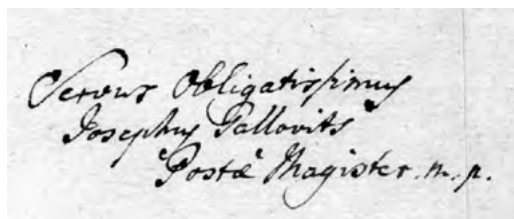 Servus Obligatissimus
Josephus Gallovits
Postæ Magister m. p.